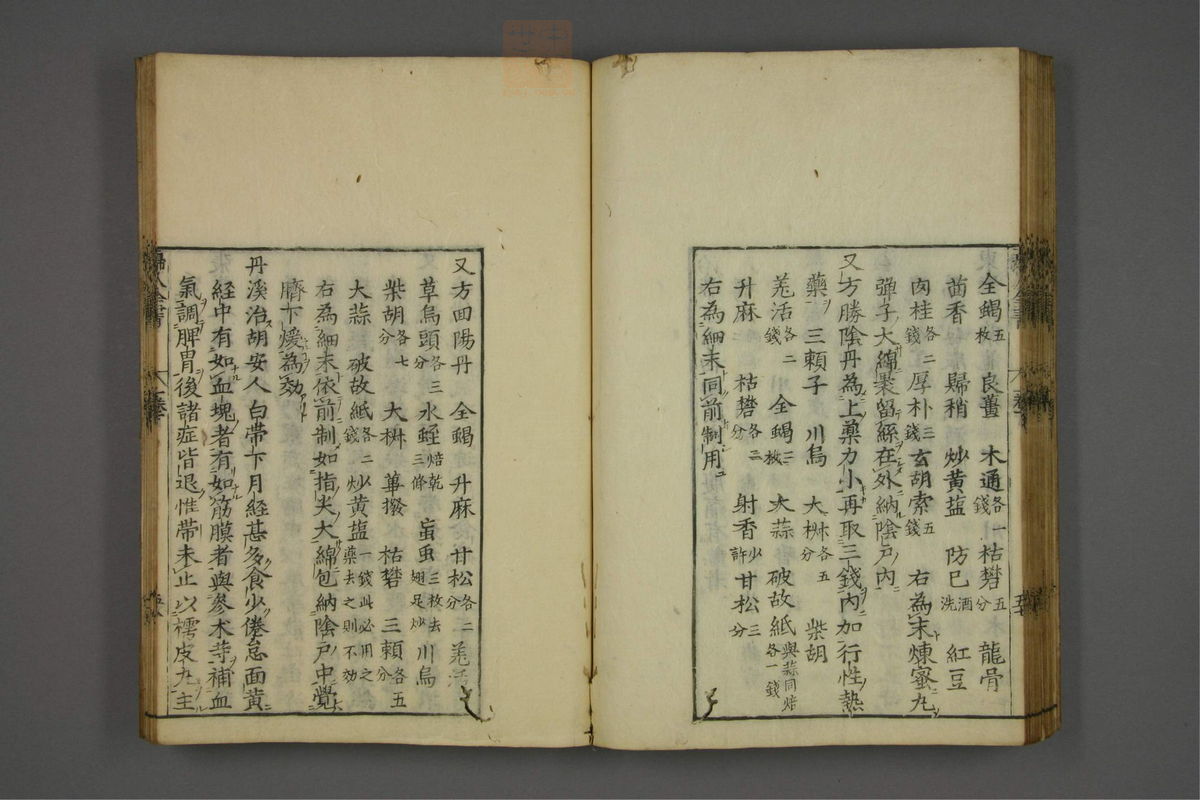 全蝎五枚 良薑 木通各一錢 枯礬五分 龍骨
茴香 歸稍 炒黄盐 防已酒洗 紅豆
肉桂各二錢 厚朴三錢 玄胡索五錢 右為末煉蜜丸
弾子大綿裹留絲在外納陰戸内
又方勝陰丹為上藥力小再取三錢内加行性熱
藥 三頼子 川烏 大椒各五分 柴胡
羗活各二錢 全蝎三枚 大蒜 破故紙與蒜同焙各一錢
升麻 枯礬各二分 射香少許 甘松三分
右為細末同前制用
又方回陽丹 全蝎 升麻 甘松各二分 羗活
草烏頭各三分 水蛭三條焙乾 䖟虫三枚去翅足炒 川烏
柴胡各七分 大椒 蓽撥 枯礬 三頼各五分
大蒜 破故紙各二錢 炒黄盐一錢此必用之藥去之則不効
右為細末依前制如指尖大綿包納陰戸中覺
臍下煖為効
丹溪治胡安人白帶下月經甚多食少倦怠面黄
經中有如血塊者有如筋膜者與參朮等補血
氣調脾胃後諸症皆退惟帶未止以樗皮丸主